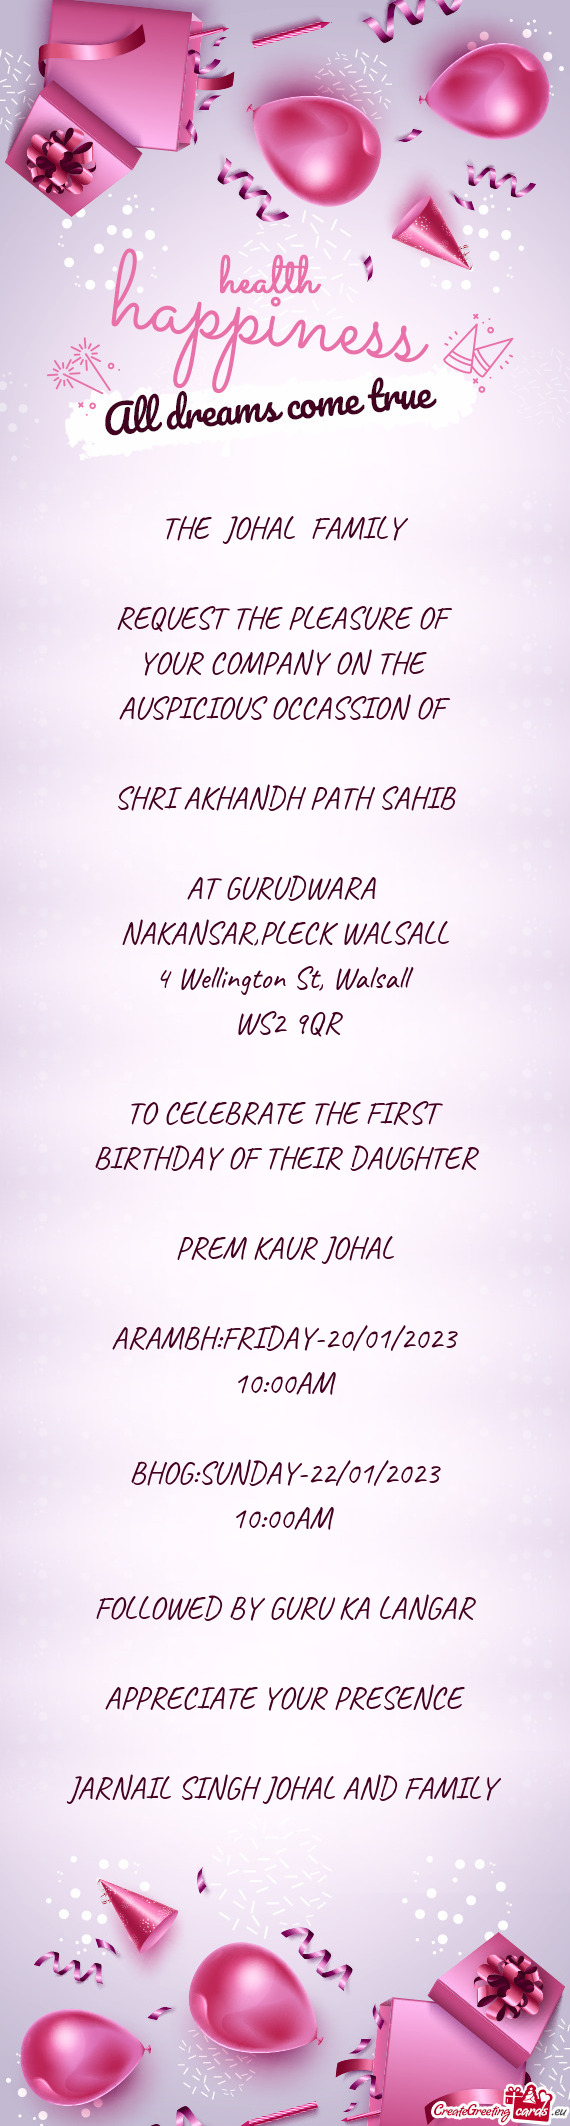 health
happiness
All dreams come true
THE JOHAL FAMILY
REQUEST THE PLEASURE OF
YOUR COMPANY ON THE
AUSPICIOUS OCCASSION OF
SHRI AKHANDH PATH SAHIB
AT GURUDWARA
NAKANSAR,PLECK WALSALL
4 Wellington St, Walsall
WS2 9QR
TO CELEBRATE THE FIRST
BIRTHDAY OF THEIR DAUGHTER
PREM KAUR JOHAL
ARAMBH:FRIDAY-20/01/2023
10:00AM
BHOG:SUNDAY-22/01/2023
10:00AM
FOLLOWED BY GURU KA LANGAR
APPRECIATE YOUR PRESENCE
JARNAIL SINGH JOHAL AND FAMILY
CreateGreetingcards.eu